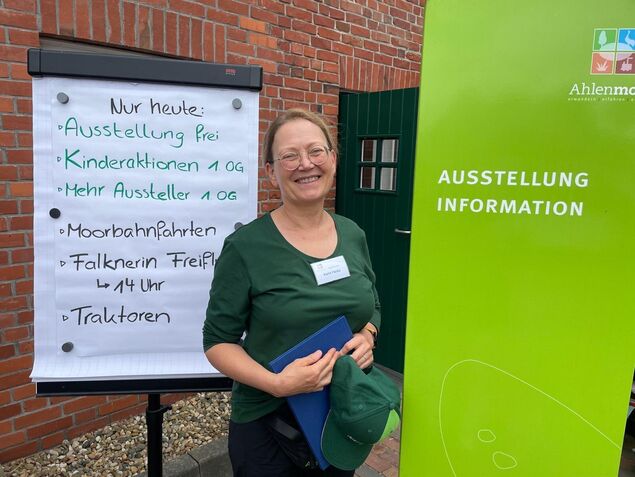 Nur heute:
▹Ausstellung frei
▹Kinderaktionen 1 OG
▹Mehr Aussteller 1 OG
▹Moorbahnfahrten
▹Falknerin
↳ 14 Uhr
▹Traktoren
Ahlenmo
AUSSTELLUNG
INFORMATION